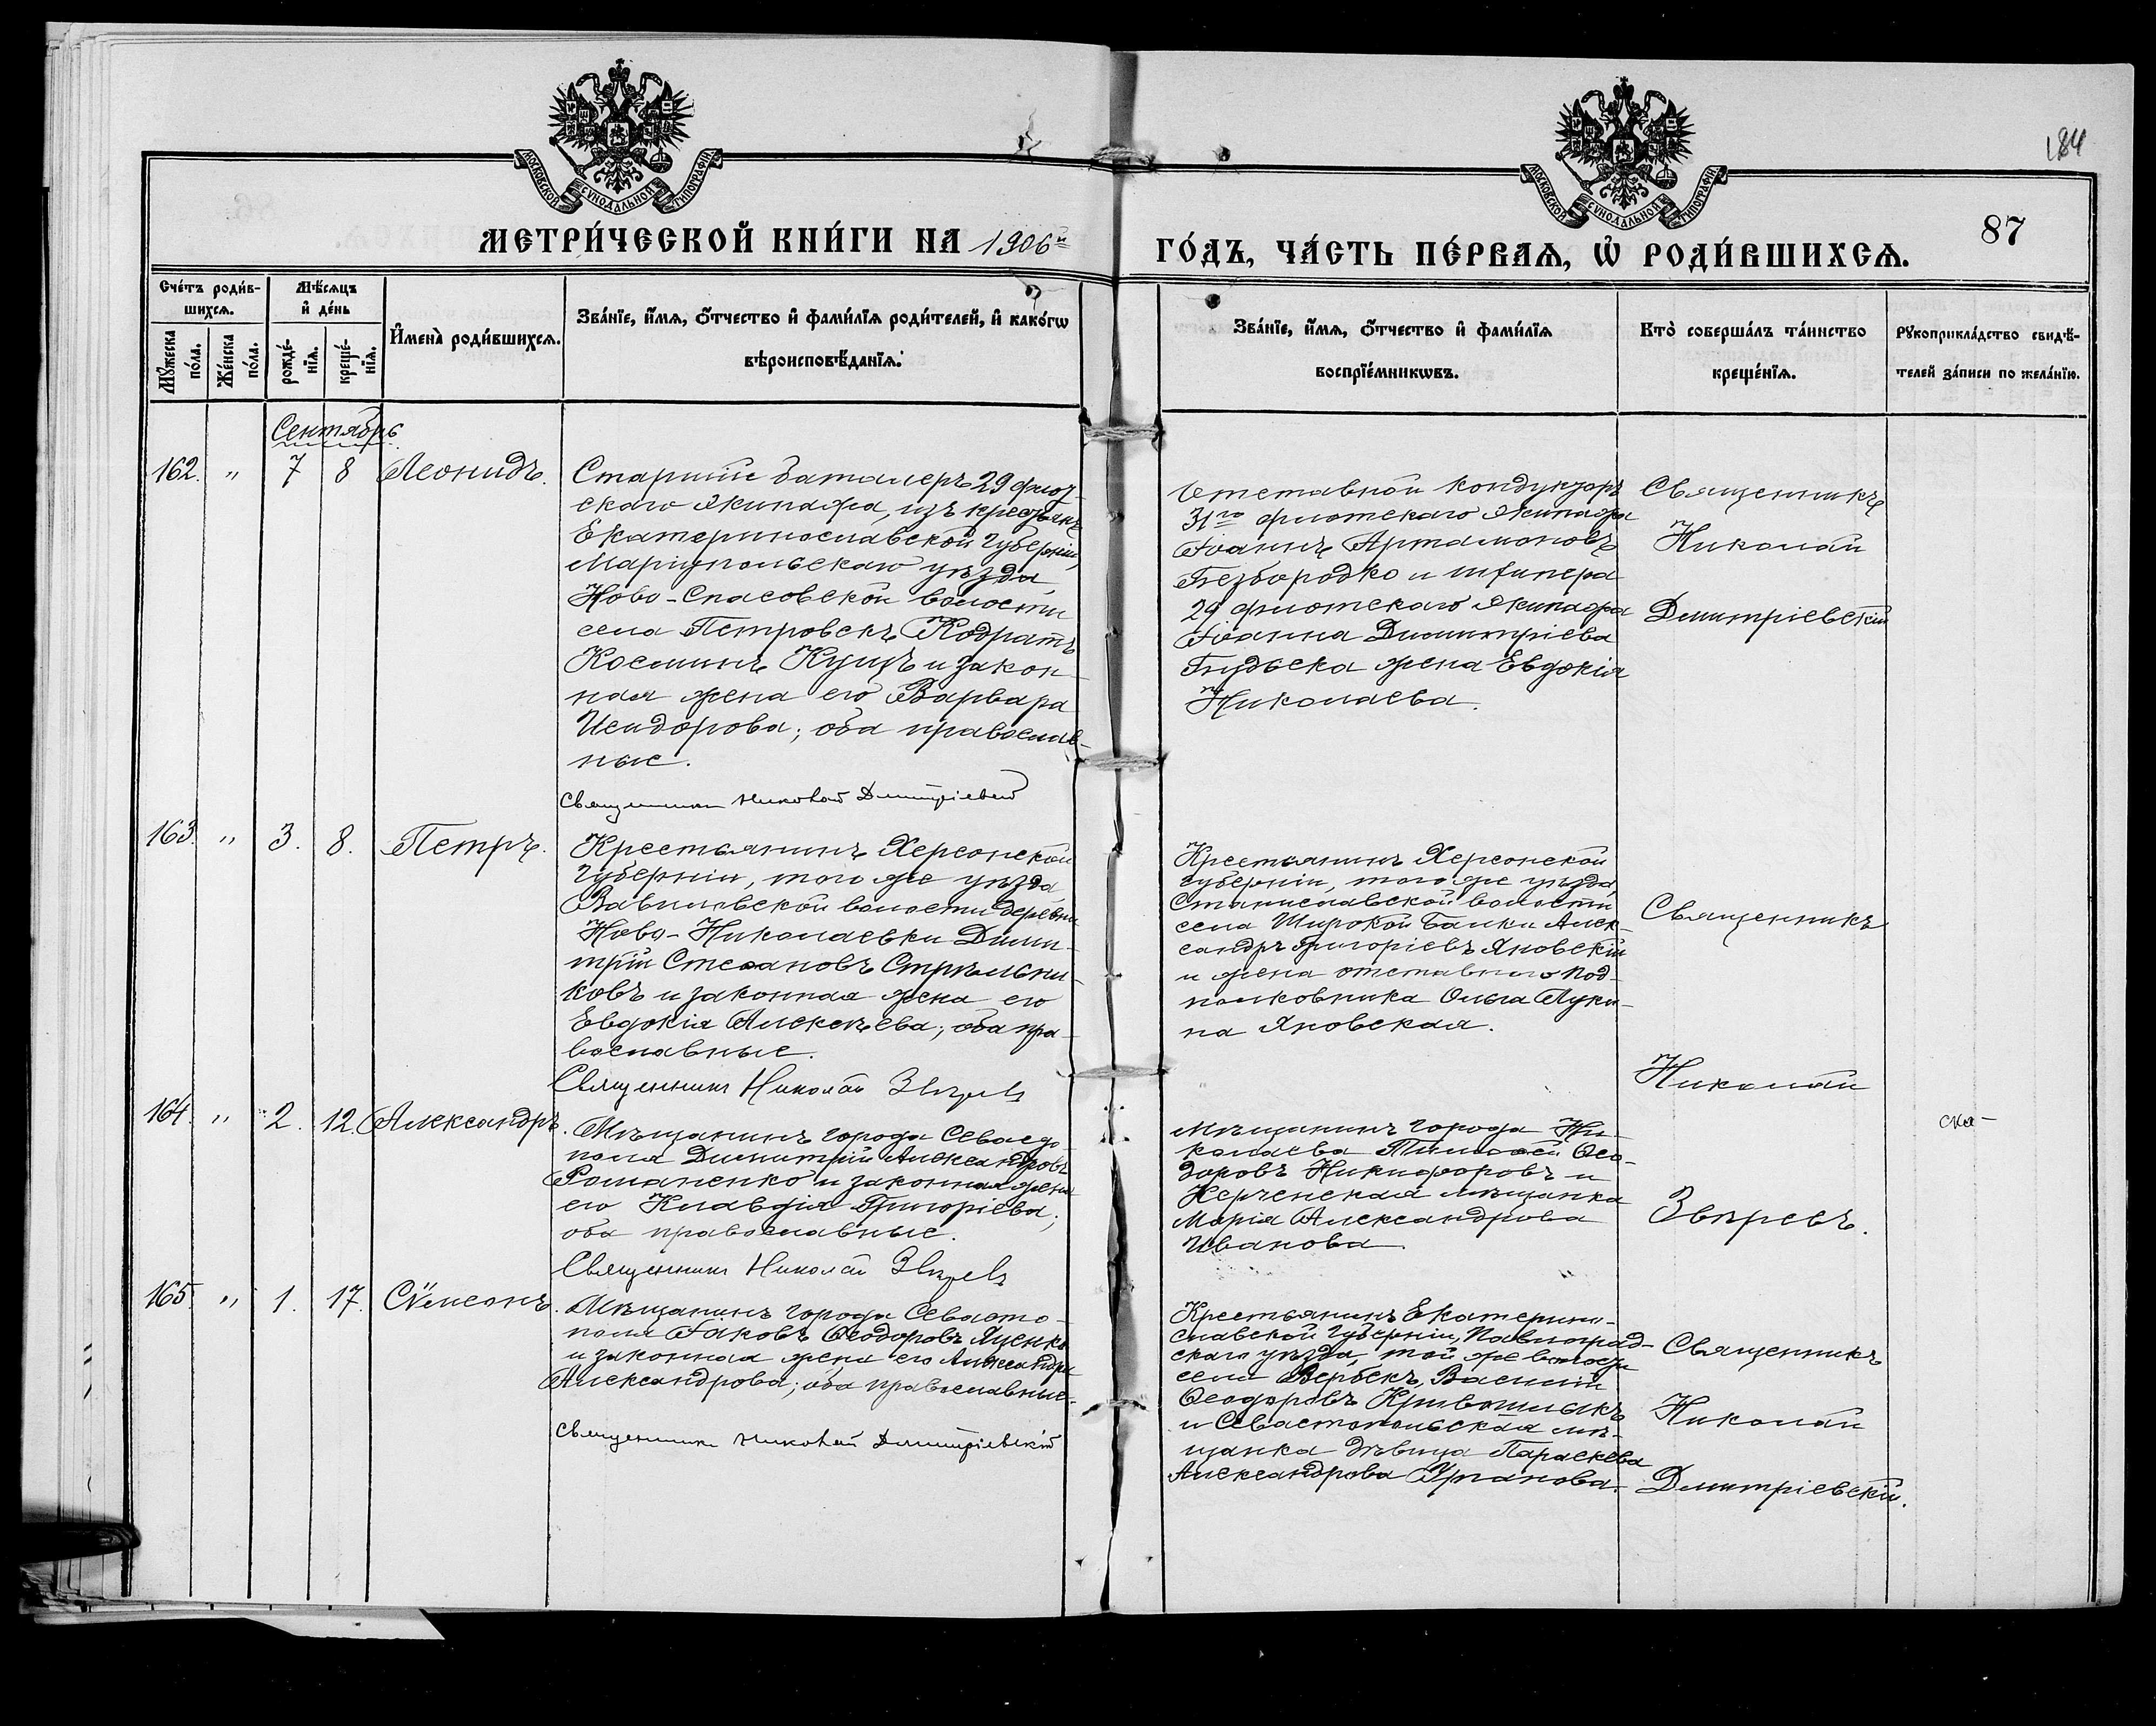 184
МОСКОВСКОЙ СѴНОДАЛЬНОЙ ТИПОГРАФІИ
МОСКОВСКОЙ СѴНОДАЛЬНОЙ ТИПОГРАФІИ
87
МЕТРИ́ЧЕСКОЙ КНИ́ГИ НА 1906й
ГО́ДЪ, ЧА́СТЬ ПЕ́РВАѦ, Ѡ҆ РОДИ́ВШИХСѦ.
Сче́тъ роди́в-
шихсѧ.
Мѣ́сѧцъ
и҆ де́нь
Мꙋ́жеска
по́ла.
Же́нска
по́ла.
рожде́-
нїѧ.
креще́-
нїѧ.
И҆мена̀ роди́вшихсѧ.
Зва́нїе, и҆́мѧ, ѻ҆́тчество и҆ фами́лїѧ роди́телей, и҆ како́гѡ
вѣроисповѣ́данїѧ.
Зва́нїе, и҆́мѧ, ѻ҆́тчество и҆ фами́лїѧ
воспрїе́мникѡвъ.
Кто̀ соверша́лъ та́инство
креще́нїѧ.
Рꙋкоприкла́дство свидѣ́-
телей за́писи по жела́нїю.
Сентябрь
162. " 7 8 Леонидъ.
Старшій баталеръ 29 флот-
скаго экипажа, изъ крестьянъ
Екатеринославской губерніи,
Маріупольскаго уѣзда
Ново-Спасовской волости
села Петровскъ Кодратъ
Косминъ Куцъ и закон-
ная жена его Варвара
Исидорова; оба православ-
ные.
Священникъ Николай Дмитріевскій
Отставной кондукторъ
31го флотскаго экипажа
Іоаннъ Артамоновъ
Безбородко и шкипера
29 флотскаго экипажа
Іоанна Димитріева
жена Евдокія
Николаева.
Священникъ
Николай
Дмитріевскій
163. " 3. 8. Петръ.
Крестьянинъ Херсонской
губерніи, того же уѣзда
Вавиловской волости деревни
Ново-Николаевки Дими-
трій Стефановъ Стрѣльни-
ковъ и законная жена его
Евдокія Алексѣева; оба пра-
вославные.
Священникъ Николай Звѣревъ
Крестьянинъ Херсонской
губерніи, того же уѣзда,
Станиславской волости
села Широкой Балки Алек-
сандръ Григоріевъ Яновскій
и жена отставного под-
полковника Ольга Луки-
на Яновская.
Священникъ
Николай
Звѣревъ.
164. " 2. 12. Александръ.
Мѣщанинъ города Севасто-
поля Димитрій Александровъ
Романенко и законная жена
его Клавдія Григоріева;
оба православные.
Священникъ Николай Звѣревъ
Мѣщанинъ города Ни-
колаева Тимофей Ѳео-
доровъ Никифоровъ и
Керченская мѣщанка
Марія Александрова
Иванова
165. " 1. 17. Сѵмеонъ.
Мѣщанинъ города Севасто-
поля Іаковъ Ѳеодоровъ Яценко
и законная жена его Александра
Александрова; оба православные.
Священникъ Николай Дмитріевскій
Крестьянинъ Екатерино-
славской губерніи, Павлоград-
скаго уѣзда, той же волости
села Вербскъ, Василій
Ѳеодоровъ Кривошлыкъ
и Севастопольская мѣ-
щанка дѣвица Параскева
Александрова Урланова.
Священникъ
Николай
Дмитріевскій.